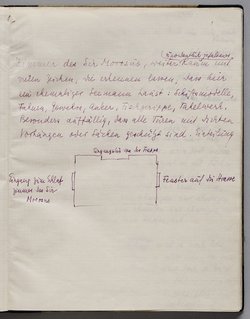 Zimmer des Sir Morosus, weiter Raum mit
vielen Zeichen, die erkennen lassen, dass hier
ein ehemaliger Seemann haust: Schiffsmodelle,
Fahnen, Gewehre, Anker, Takelwerk.
Besonders auffällig, dass alle Türen mit dichten
Vorhängen oder Säcken geschützt sind.
Eingangstür von der Treppe
Eingang zum Schlaf
zimmer des Sir
Morosus
Fenster auf die Strasse